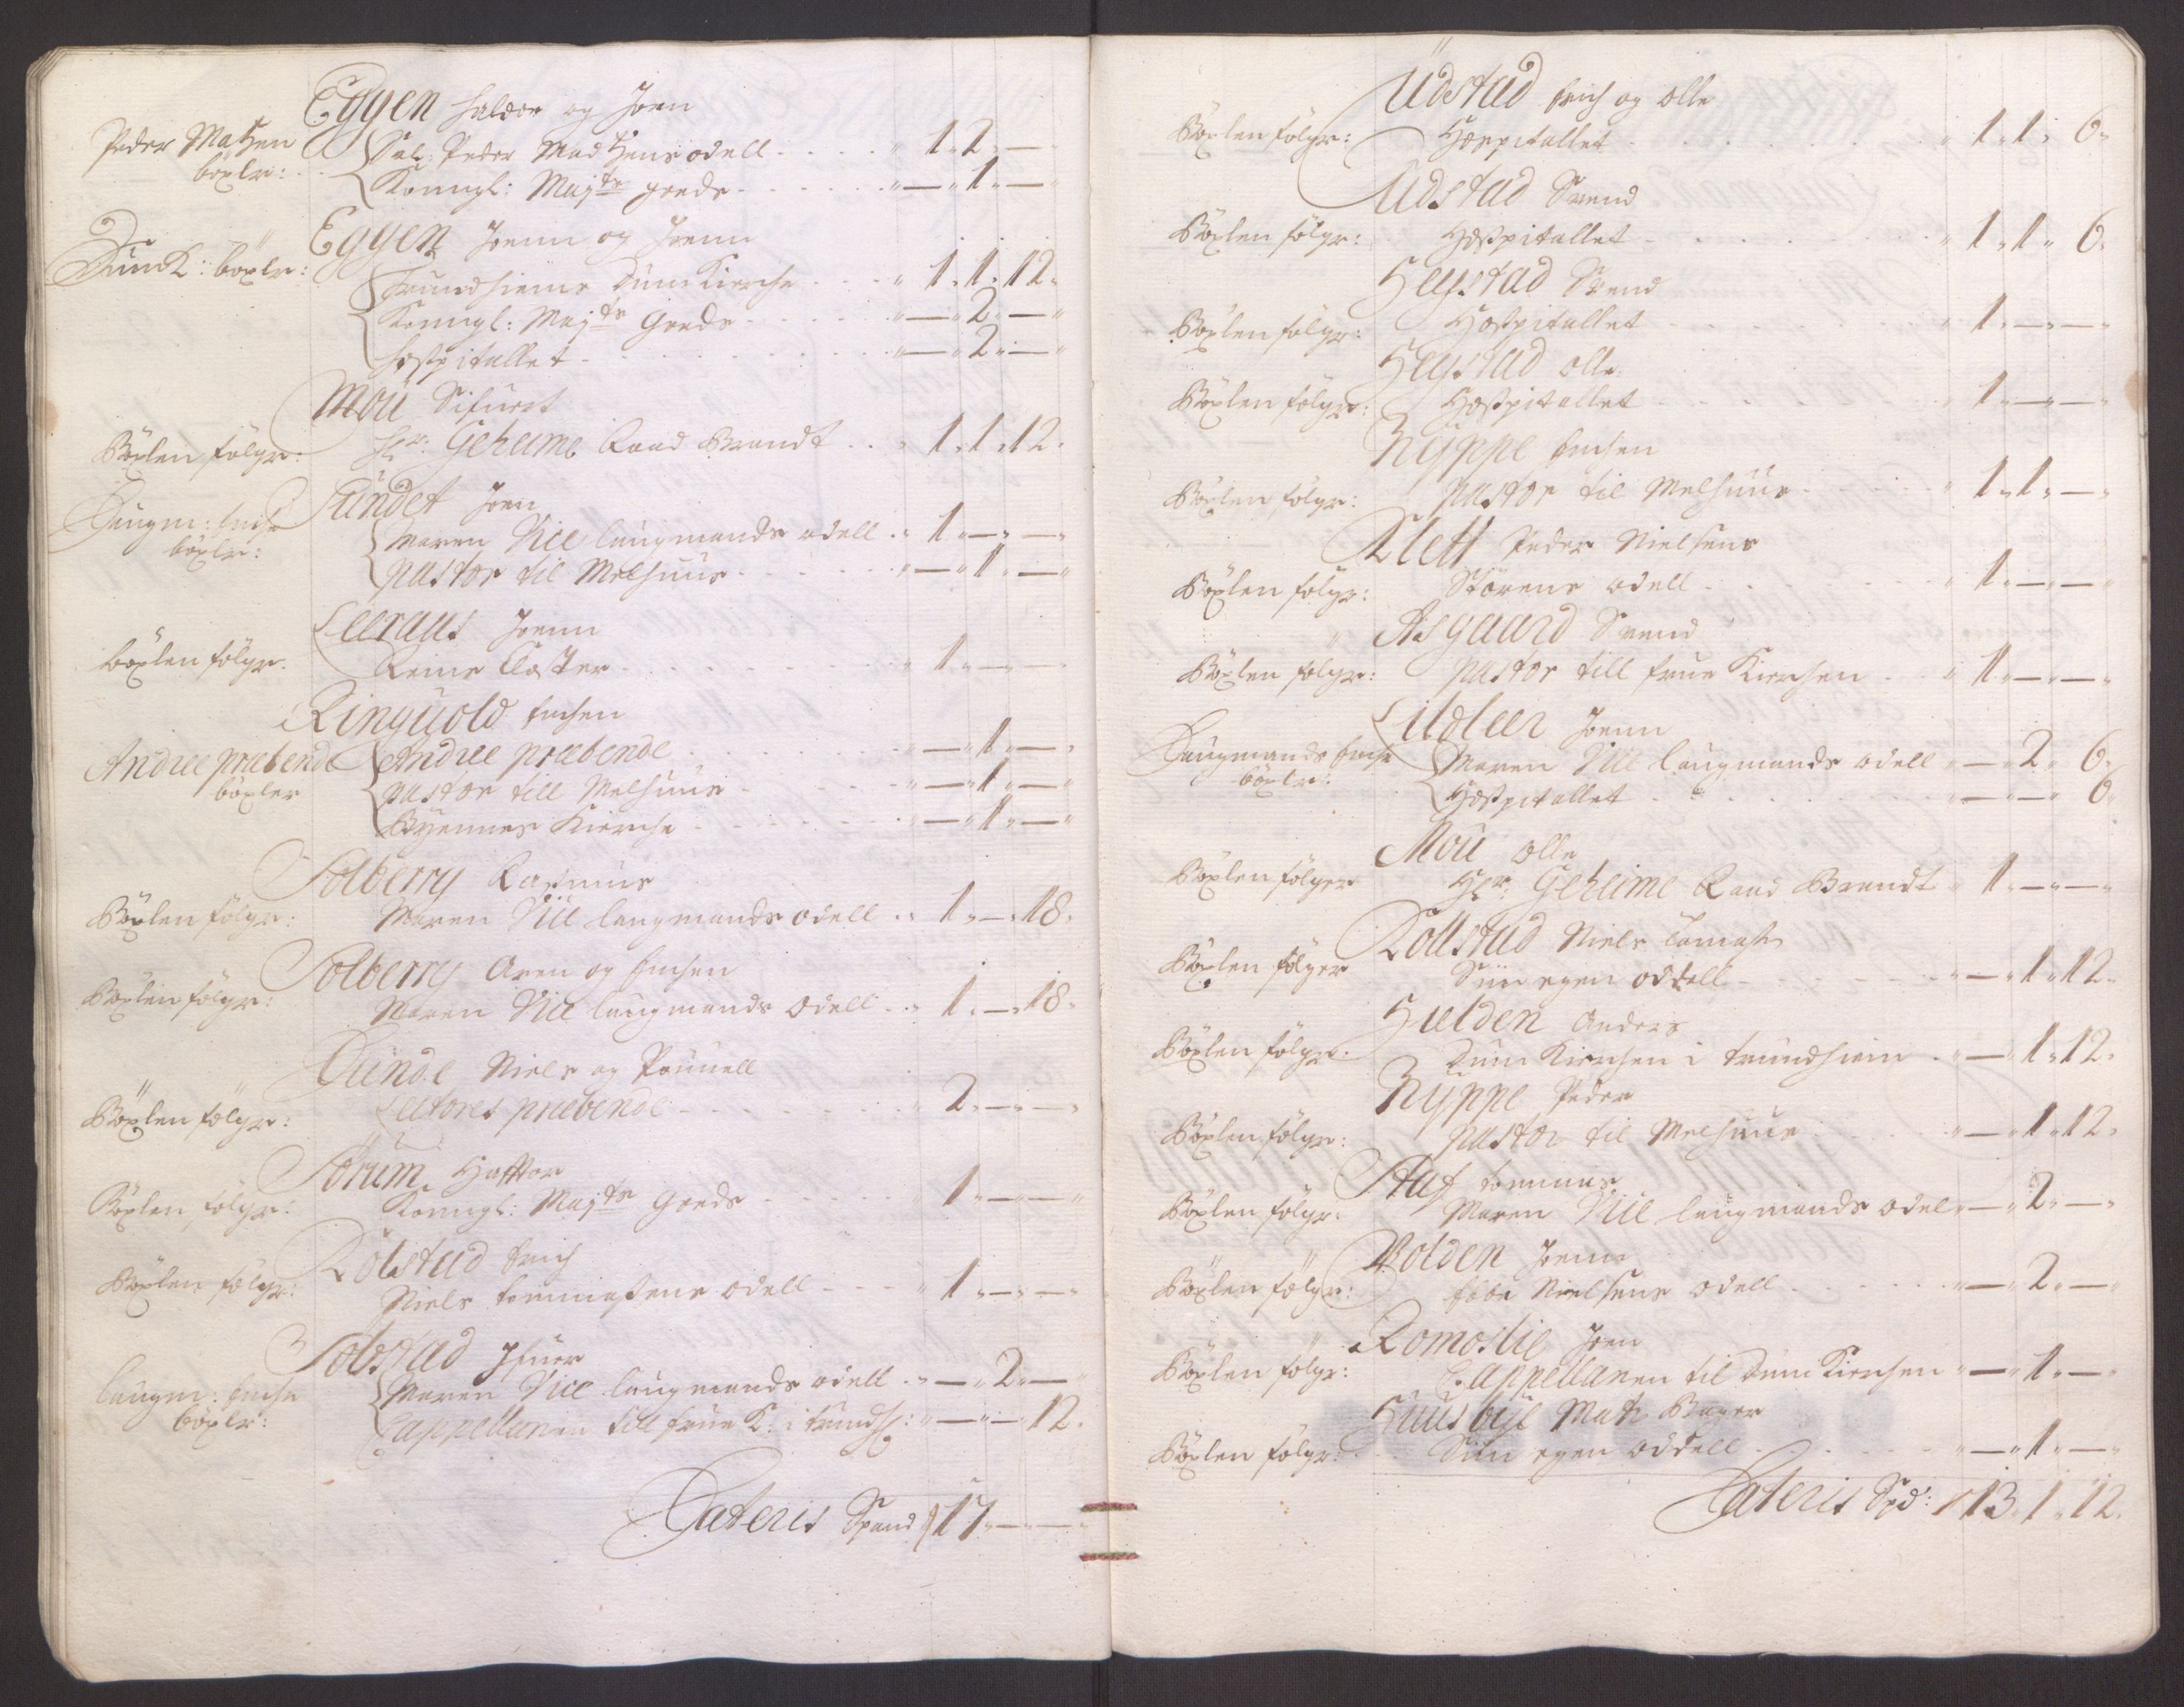 Eggen Haldor og Joen
Peder Matzen
böxler:
Sal: Peder Madtzens odell - - - - " 1 " 2 " — "
Konngl: Mayts goeds - - - - " — " 1 " — "
Eggen Joenn og Joenn
DumK: böxler:
Trundhiems Dum Kierche - - - " 1 " 1 " 12 "
Konngl: Mayts Goeds - - - - " — " 2 " — "
Hospitallet - - - - " — " 2 " — "
Mou Sifuert
Böxlen følger:
Hr: Geheime Raad Brandt - - " 1 " 1 " 12 "
Sundet Joen
Laugm: Enche
böxler:
Maren Sl laugmands odell - " 1 " — " — "
pastor til Melhuus - - - - " — " 1 " — "
Leeraus Joenn
böxlen følger.
Reins Closter - - - - " 1 " — " — "
Ringuold Enchen
Andree præbende
böxler
Andree præbende - - - - " — " 1 " — "
pastor till Melhuus - - - - " — " 1 " — "
Byennes Kierche - - - - " — " 1 " — "
Solberrg Rasmus
Böxlen følger:
Maren Sl laugmands odell - - 1 " — " 18 "
Solberrg Aren og Enchen
Böxlen følger:
Maren Sl laugmands Odell - - 1 " — " 18 "
Lunde Niels og Pouuell
Böxlen følger:
Lectores præbende - - - - " 2 " — " — "
Sorum Hafftor
Böxlen følger:
Konngl: Mayts Goeds - - - - 1 " — " — "
Rolstad Erich
Böxlen følger:
Niels Tommesens odell - - - " 1 " — " — "
Solstad Ifuer
laugm: Enche
böxler:
Maren Sl laugmands odell - " — " 2 " — "
Cappellanen till frue K: i trundh: " — " — " 12 "
Lateris Spand 17 " — " — "
Udstad Erich og Olle
Böxlen følger:
Hospitallet - - - - " 1 " 1 " 6 "
Udstad Svend
Böxlen følger:
Hospitallet - - - - " 1 " 1 " 6 "
Hegstad Svend
Böxlen følger:
Hospitallet - - - - " 1 " — " — "
Hegstad Olle
Böxlen følger:
Hospitallet - - - - " 1 " — " — "
Ryppe Enchen
Böxlen følger:
pastor til Melhuus - - - - " 1 " 1 " — "
Klett Peder Nielsens
Böxlen følger:
Störens odell - - - - " 1 " — " — "
Asgaard Svend
Böxlen følger:
pastor till frue Kierchen - - " 1 " — " — "
Lidleer Joenn
Laugmands Enche
böxler:
Maren Sl laugmands odell " — " 2 " 6 "
Hospitallet - - - - " — " — " 6 "
Mou Olle
Böxlen følger
Hr: Geheime Raad Brandt " 1 " — " — "
Rollstad Niels Tomass
Böxlen følger
Siin egen oddell - - - - " — " 1 " 12 "
Hulden Anders
Böxlen følger:
Dum Kierchen i trundhiem - " — " 1 " 12 "
Ryppe Peder
Böxlen følger:
pastor til Melhuus - - - - " — " 1 " 12 "
Staf tommes
Böxlen følger:
Maren Sl laugmands odel " — " 2 " — "
Wolden Joenn
Böxlen følger:
Ebbe Nielsens odell - - - - " — " 2 " — "
Romoslie Joen
Böxlen følger:
Cappellanen til Dum Kierchen " — " 1 " — "
Huusbye Matz Bager
Böxlen følger:
Siin egen oddell - - - - " — " 1 " — "
Lateris Spd: 13 " 1 " 12 "